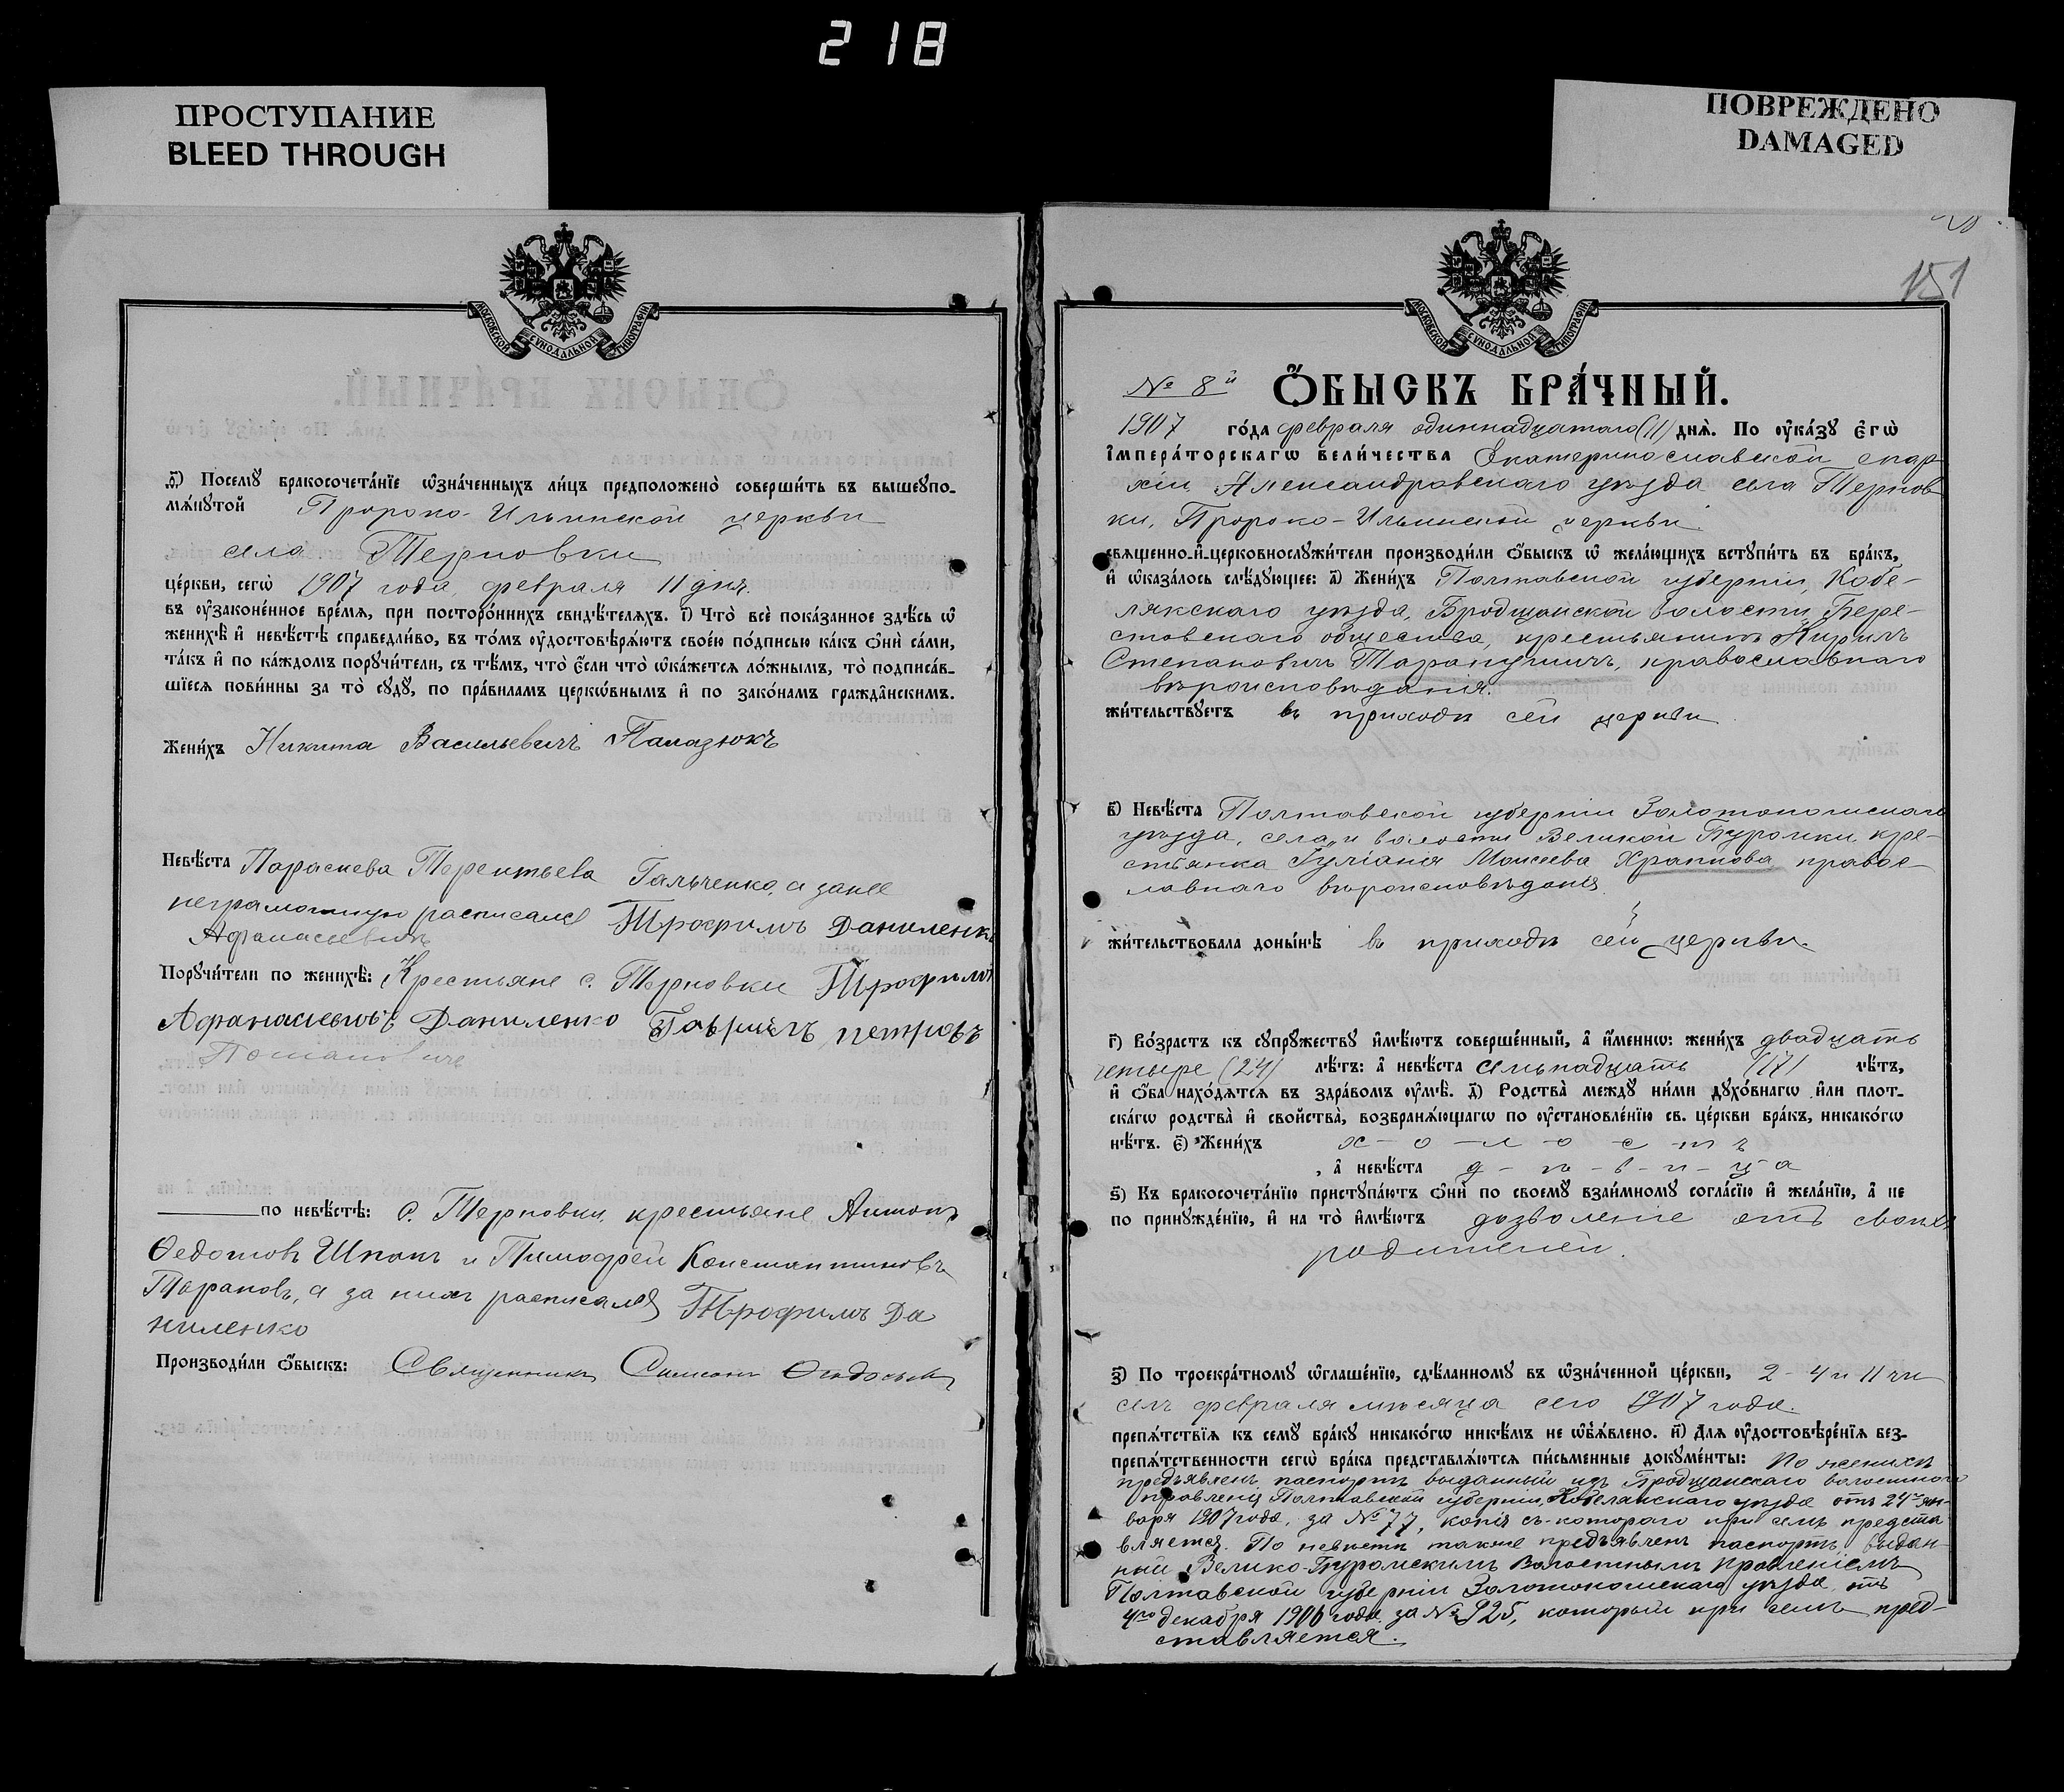 218
ПРОСТУПАНИЕ
BLEED THROUGH
ПОВРЕЖДЕНО
DAMAGED
МОСКОВСКОЙ СѴНОДАЛЬНОЙ ТИПОГРАФІИ
ѳ҃) Посемꙋ бракосочета́нїе ѡ҆зна́ченныхъ ли́цъ предположено̀ соверши́ть въ вышеупо-
мѧ́нутой Пророко-Ильинской церкви
села Терновки
це́ркви, сегѡ̀ 1907 года, февраля 11 дня.
въ оу҆зако́ненное вре́мѧ, при посторо́ннихъ свидѣ́телѧхъ. і҃) Что̀ всѐ пока́занное здѣ́сь ѡ҆
женихѣ̀ и҆ невѣ́стѣ справедли́во, въ то́мъ оу҆достовѣрѧ́ютъ свое́ю по́дписью ка́къ ѻ҆нѝ са́ми,
та́къ и҆ по ка́ждомъ поручи́тели, съ тѣ́мъ, что̀ є҆́сли что̀ ѡ҆ка́жетсѧ ло́жнымъ, то̀ подписа́в-
шїесѧ пови́нны за то̀ сꙋдꙋ̀, по пра́виламъ церко́внымъ и҆ по зако́намъ гражда́нскимъ.
Жени́хъ Никита Васильевичъ Палазюкъ
Невѣ́ста Параскева Терентьева Гальченко, а за нее
неграмотную росписался Трофимъ Даниленко
Афанасьевичъ
Поручи́тели по женихѣ̀: Крестьяне с. Терновки Трофимъ
Афанасьевичъ Даниленко Гавриилъ петровъ
по невѣ́стѣ: с. Терновки, крестьяне Антонъ
Ѳедотовъ Шпакъ и Тимофей Константиновъ
Тарановъ, а за нихъ расписался Трофимъ Да
ниленко
Производи́ли ѻ҆́быскъ: Священникъ Симеонъ
151
№ 8й Ѻ҆́БЫСКЪ БРА́ЧНЫЙ.
1907 го́да февраля одиннадцатаго (11) днѧ̀. По оу҆ка́зꙋ є҆гѡ̀
і҆мпера́торскагѡ вели́чества Екатеринославской епар-
хіи Александровскаго уѣзда села Тернов-
ки, Пророко-Ильинской церкви
свѧще́нно-и҆-церковнослужи́тели производи́ли ѻ҆́быскъ ѡ҆ жела́ющихъ вступи́ть въ бра́къ,
и҆ ѡ҆каза́лось слѣ́дующее: а҃) Жени́хъ Полтавской губерніи, Кобе-
лякскаго уѣзда, Бродщанской волости, Бере-
стовскаго общества, крестьянинъ Кириллъ
Степановичъ, православнаго
вѣроисповѣданія.
жи́тельствуетъ въ приходѣ сей церкви
в҃) Невѣ́ста Полтавской губерніи Золотоношскаго
уѣзда, села и волости Великой Буромки кре-
стьянка Іуліанія Моисеева Храпкова правос-
лавнаго вѣроисповѣданія.
жи́тельствовала доны́нѣ въ приходѣ сей церкви.
г҃) Во́зрастъ къ супрꙋ́жествꙋ и҆мѣ́ютъ соверше́нный, а҆ и҆́меннѡ: жени́хъ двадцать
четыре (24) лѣ́тъ: а҆ невѣ́ста семнадцать (17) лѣ́тъ,
и҆ ѻ҆́ба нахо́дѧтсѧ въ здра́вомъ оу҆мѣ̀. д҃) Родства̀ между ни́ми дꙋхо́внагѡ и҆ли плот-
ска́гѡ родства̀ и҆ сво́йства̀, возбранѧ́ющагѡ по оу҆становле́нїю св. це́ркви бра́къ, никако́гѡ
нѣ́тъ. є҃) Жени́хъ х-о-л-о-с-т-ъ
, а҆ невѣ́ста д-ѣ-в-и-ц-а
ѕ҃) Къ бракосочета́нїю приступа́ютъ ѻ҆нѝ по своемꙋ̀ взаи́мномꙋ согла́сїю и҆ жела́нїю, а҆ не
по принꙋжде́нїю, и҆ на то̀ и҆мѣ́ютъ дозволеніе отъ своихъ
родителей.
з҃) По троекра́тномꙋ ѡ҆глаше́нїю, сдѣ́ланномꙋ въ ѡ҆зна́ченной це́ркви, 2 - 4 и 11 чи
слъ февраля мѣсяца сего 1907 года.
препѧ́тствїѧ къ семꙋ̀ бра́кꙋ никако́гѡ никѣ́мъ не ѡ҆б̾ѧ́влено. и҃) Длѧ оу҆достовѣре́нїѧ без-
препѧ́тственности сегѡ̀ бра́ка представлѧ́ютсѧ пи́сьменные докуме́нты: По женихѣ
предъявленъ паспортъ выданный изъ Бродщанскаго волостного
правленія Полтавской губерніи, Кобелякскаго уѣзда отъ 24го ян-
варя 1907 года, за № 77, копія съ котораго при семъ предста-
вляется. По невѣстѣ также предъявленъ паспортъ, выдан-
ный Велико-Буромскимъ Волостнымъ Правленіемъ
Полтавской губерніи Золотоношскаго уѣзда отъ
4го декабря 1906 года за № 925, который при семъ пред-
ставляется.